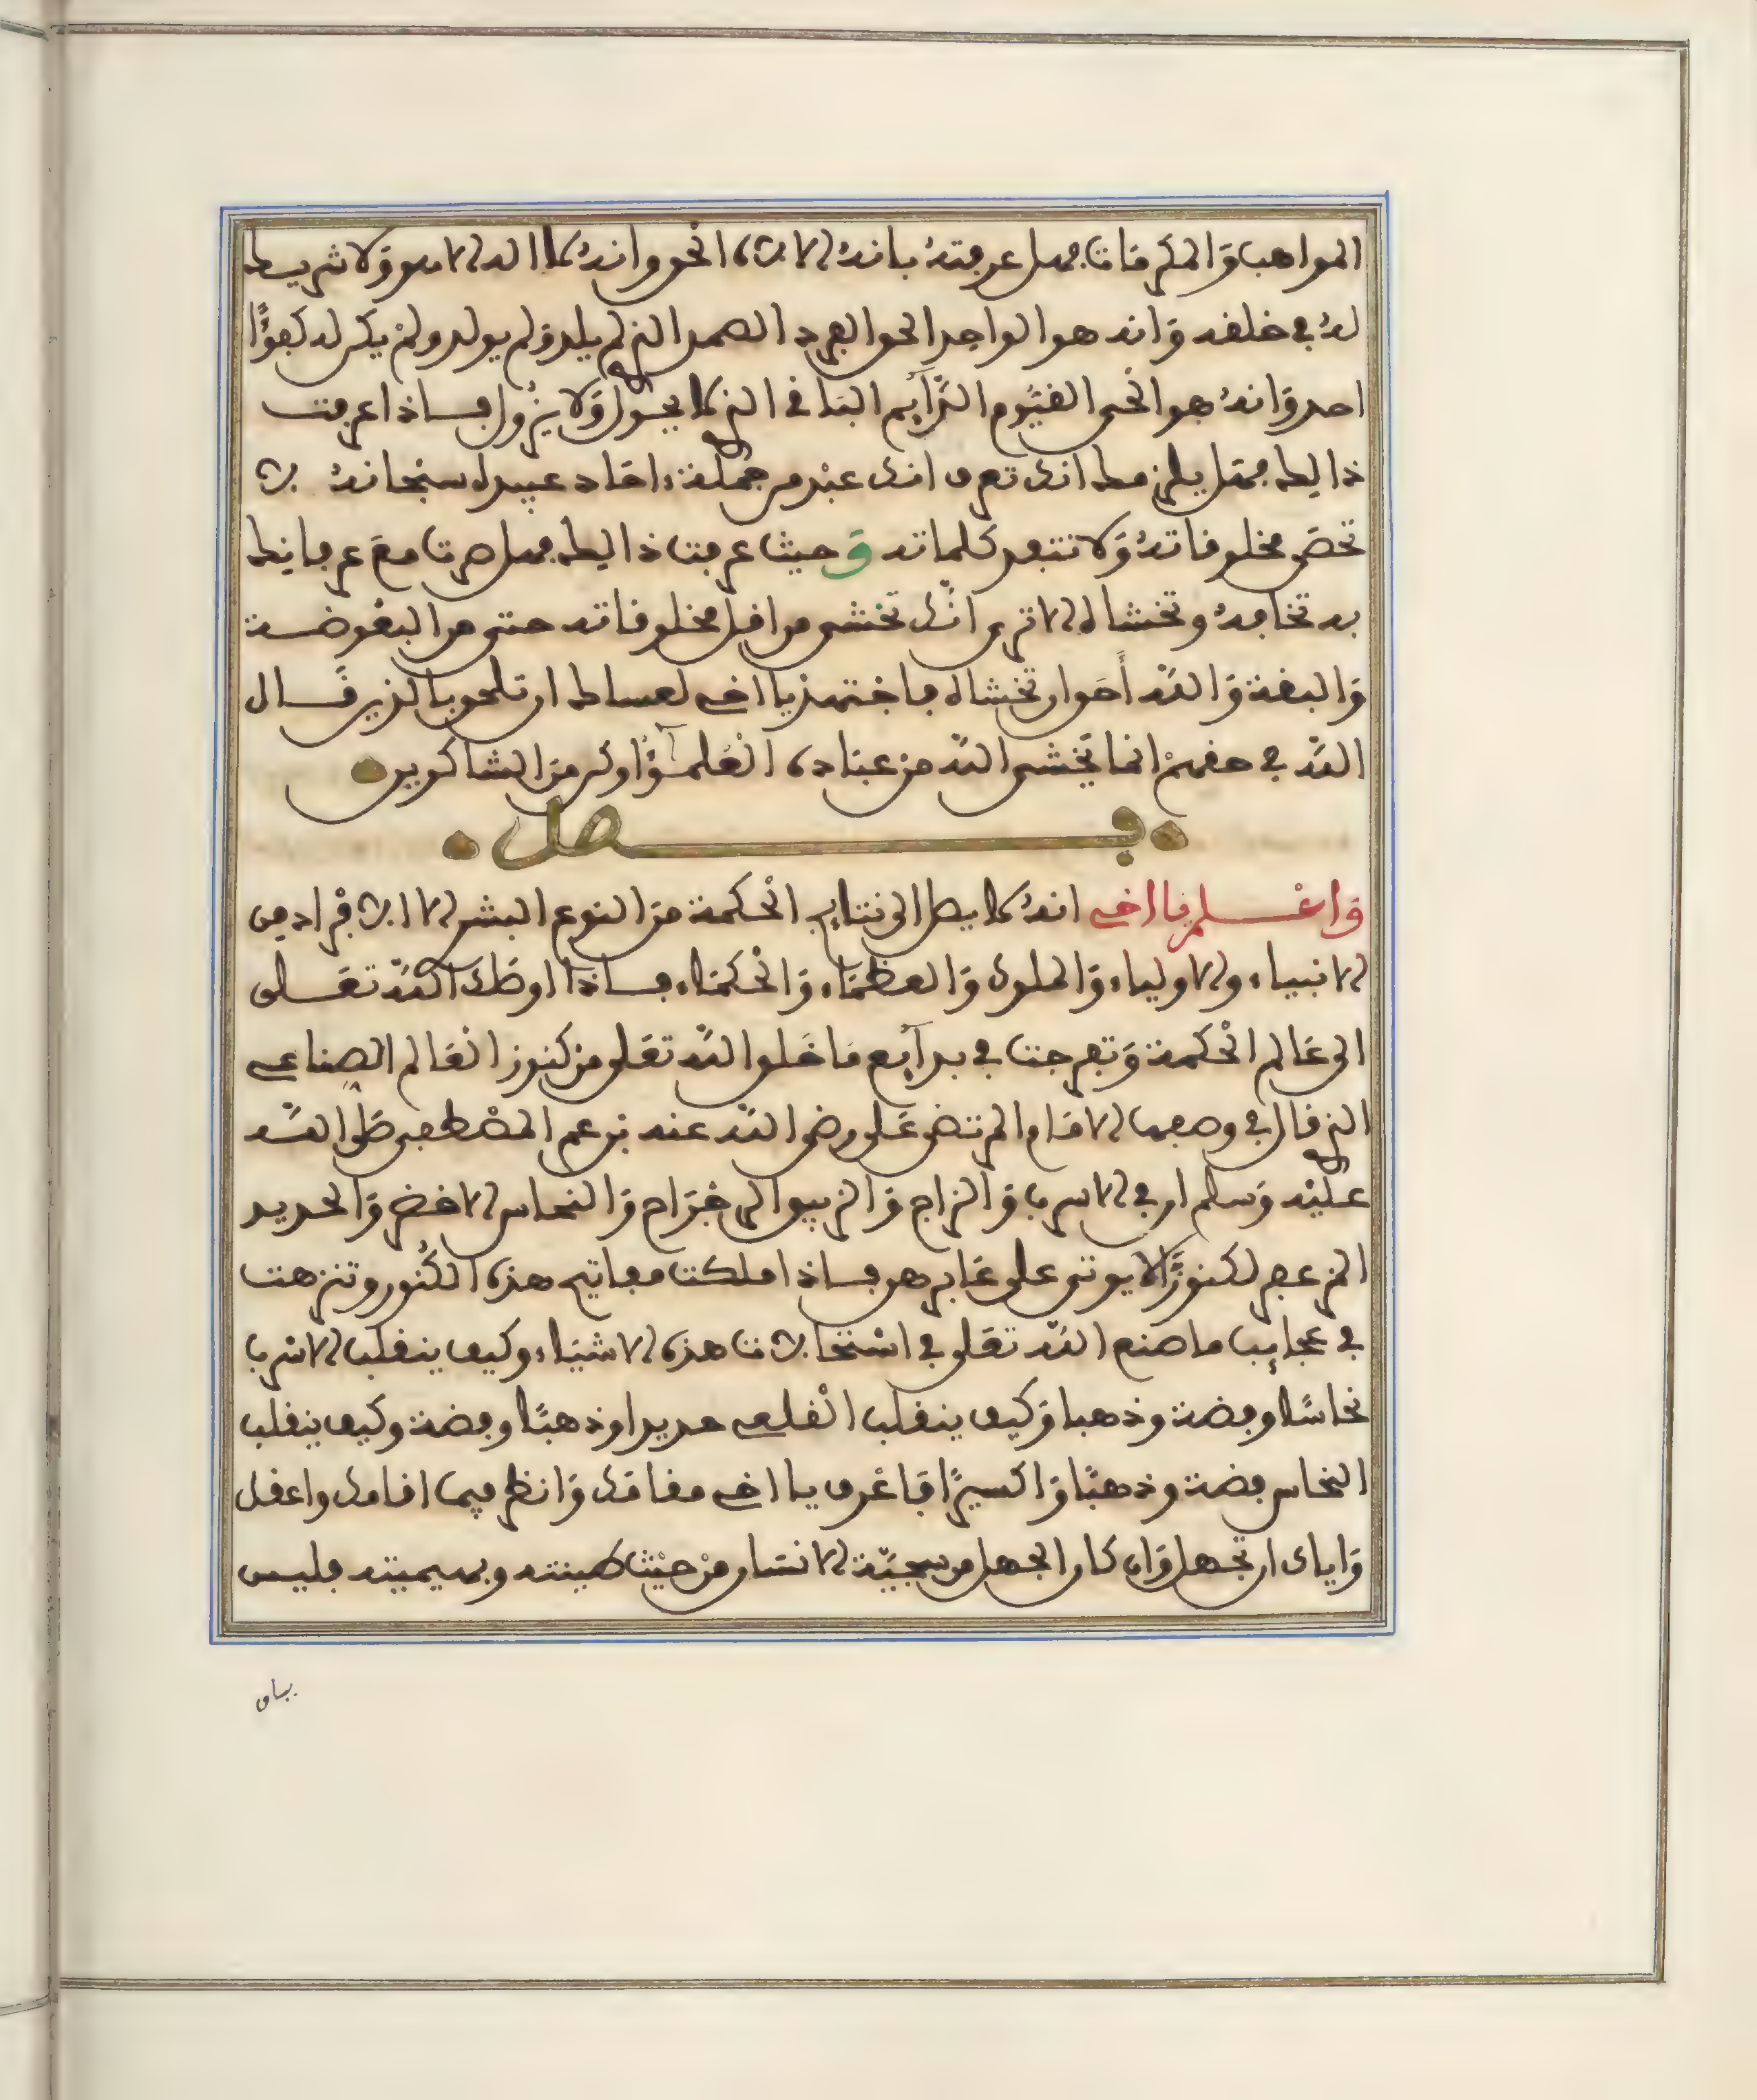 المواهب والمكرمات فهل عرفته بانه الاله الحق وانه لا اله الا هو ولا شريك
له في خلقه وانه هو الواحد الحق الفرد الصمد الذي لم يلد ولم يولد ولم يكن له كفؤًا
احد وانه هو الحي القيوم الدآيم الباقي الذي لا يحول ولا يزول فاذا عرفت
ذالك فهل يلزمك انك تعرف انك عبد من جملة احاد عبيده سبحانه لا
تحصى مخلوقاته ولا تنفد كلماته وحيث عرفت ذالك فهل صرت مع عرفانك
به تخافه وتخشاه الا ترى انك تخشى من اقل مخلوقاته حتى من البعوضة
والبقة والله أحق ان تخشاه فاجتهد يا اخي لعساك ان تلحق بالذين قال
الله في حقهم انما يخشى الله من عباده العلمـؤا وكن من الشاكرين
فصل
واعلم يا اخي انه لا يصل الى نتايج الحكمة من النوع البشري الا افراد من
الانبياء والاولياء والملوك والعظماء والحكماء فاذا اوصلك الله تعلى
الى عالم الحكمة وتفرجت في بدآيع ما خلق الله تعلى من كنوز العالم الصناعي
الذي قال في وصفها الامام المرتضى علي رضي الله عنه بن عم المصطفى صلى الله
عليه وسلم ان في الاسرب والزاج والزيبق الرجراج والنحاس الاخضر والحديد
المزعفر لكنوزًا لا يوتى على غابرهن فاذا ملكت مفاتيح هذه الكنوز وتنزهت
في عجايب ما صنع الله تعلى في استحالات هذه الاشياء وكيف ينقلب الاسرب
نحاسًا وفضة وذهبا وكيف ينقلب القلعي حديدا وذهبًا وفضة وكيف ينقلب
النحاس فضة وذهبًا واكسيرًا فاعرف يا اخي مقامك وانظر فيما اقامك واعقل
واياك ان تجهل وان كان الجهل من سجية الانسان من حيث طينته وبهيميته فليس
بيان